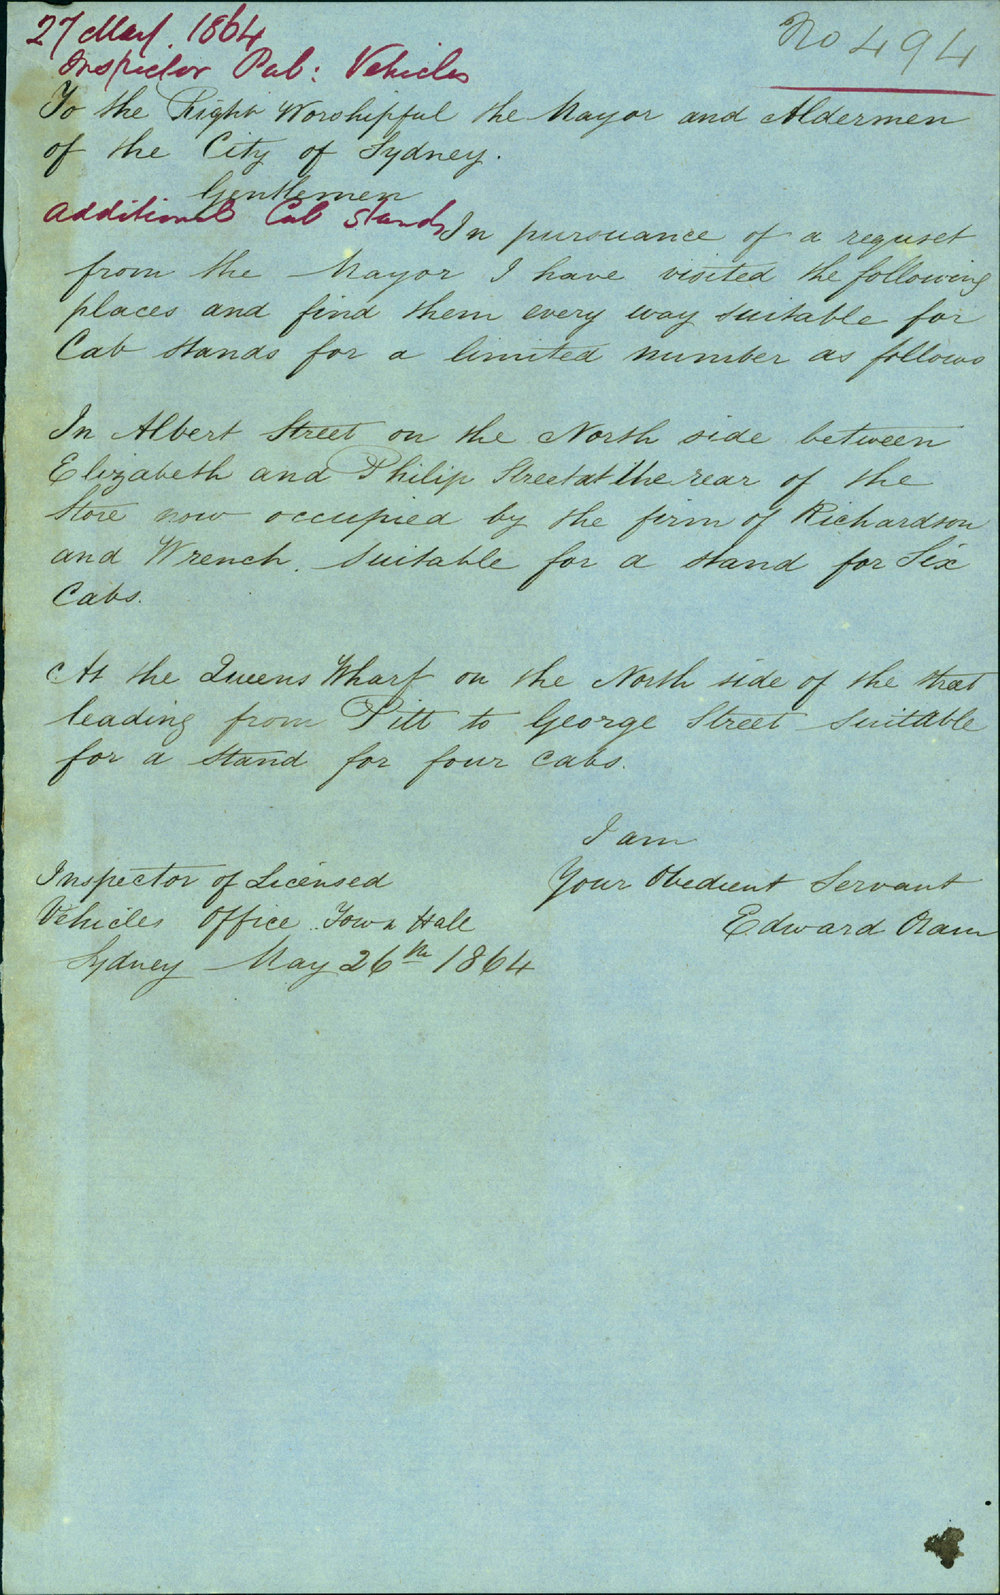 27 May. 1864
No 494
Inspector Pub: Vehicles
To the Right Worshipful the Mayor and Aldermen
of the City of Sydney.
Gentlemen
Additional Cab Stands
In pursuance of a requset
from the Mayor I have visited the following
places and find them every way suitable for
Cab stands for a limited number as follows
In Albert Street on the North side between
Elizabeth and Philip Street at the rear of the
Store now occupied by the firm of Richardson
and Wrench. Suitable for a stand for Six
Cabs.
At the Queens Wharf on the North side of the street
leading from Pitt to George Street Suitable
for a stand for four cabs.
I am
Your Obedient Servant
Edward Oram
Inspector of Licensed
Vehicles Office Town Hall
Sydney May 26th 1864